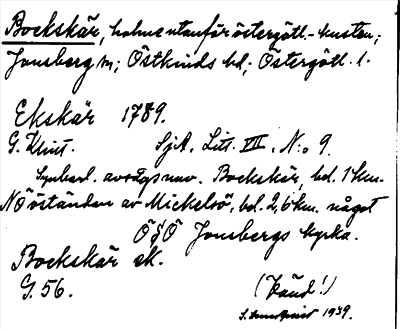 Bockskär, holme utanför östergötl.-kusten;
Jonsberg sn; Östkinds hd; Östergötl. l.
Ekskär 1789.
G. Klint. SjA, Litt. VII, N:o 9.
Synbarl. avsågs nuv. Bockskär, bel. 1 km.
NÖ östanden av Mickelsö, bel. 2,6 km. något
Ö§Ö Jonsbergs kyrka.
Bockskär ek.
G. 56. (känd!)
1939.